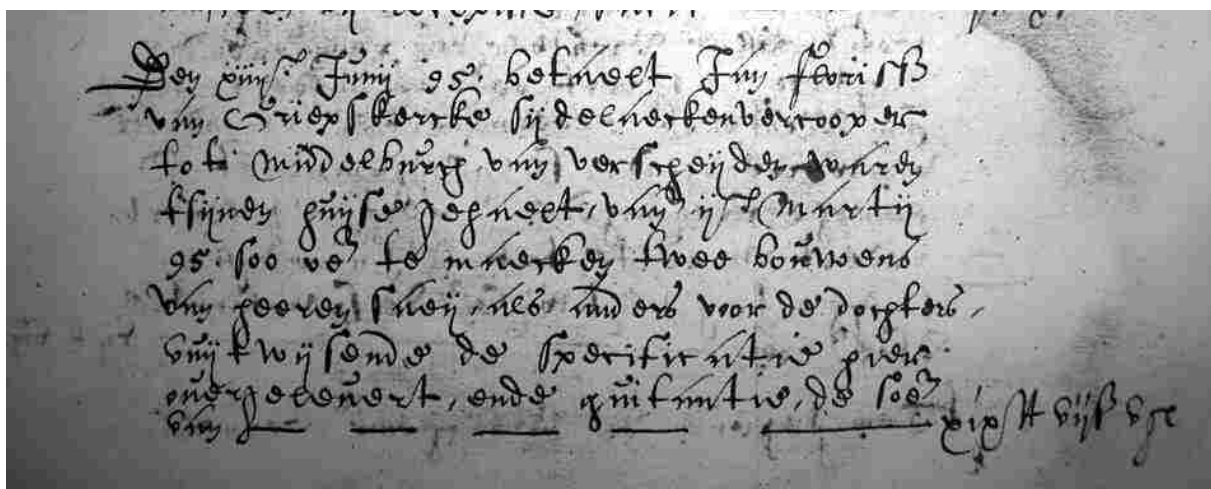 Den xiiijen Junij 95. betaelt Jan Florissz
van Griepskercke sijdelaeckenvercooper
tot Middelburch van verscheijden waren
tsijnen huijse gehaelt, van ijen Martij
95. soo om te maecken twee bouwens
van heeren saeij, als anders voor de dochters,
vuijtwijsende de specificatie hier
overgelevert, ende quitantie, de somme
van